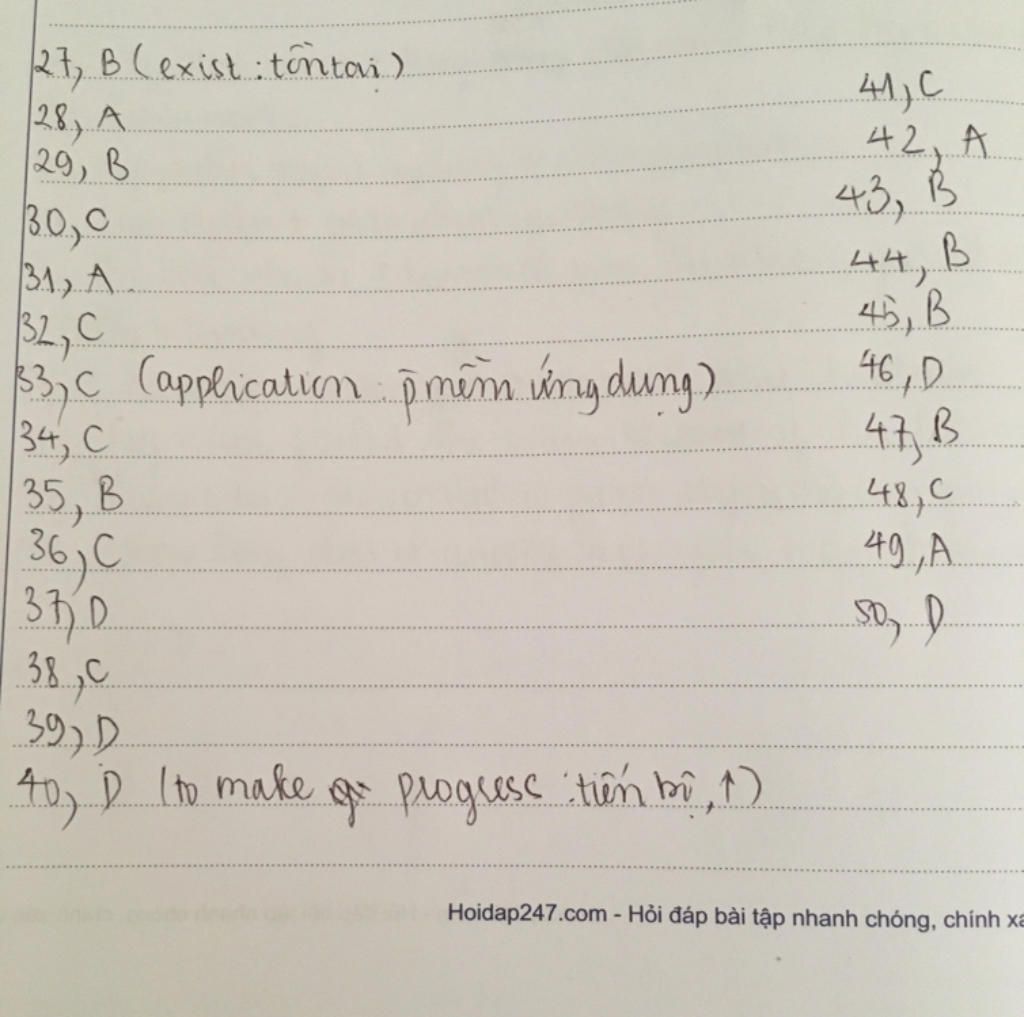 27, B (exist : tồn tại)
28, A
29, B
30, C
31, A.
32, C
33, C (application : p̄ mềm ứng dụng)
34, C
35, B
36, C
37, D
38, C
39, D
40, D (to make progress : tiến bộ, ↑)
41, C
42, A
43, B
44, B
45, B
46, D
47, B
48, C
49, A
50, D
Hoidap247.com - Hỏi đáp bài tập nhanh chóng, chính xá